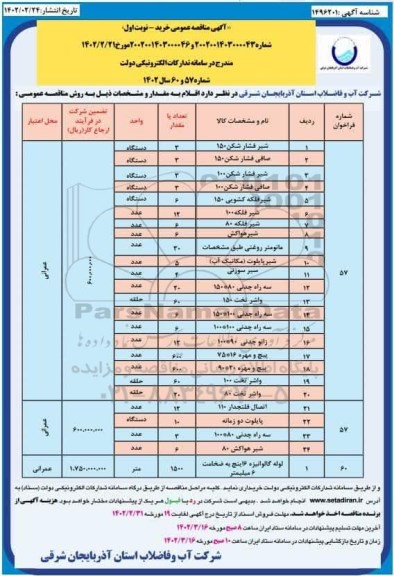 شناسه آگهی: ۱۴۹۶۲۰۱
تاریخ انتشار: ۱۴۰۲/۰۲/۲۴
«آگهی مناقصه عمومی خرید - نوبت اول»
شماره ۲۰۰۲۰۰۱۴۰۳۰۰۰۰۴۳ و ۲۰۰۲۰۰۱۴۰۳۰۰۰۰۴۶ مورخ ۱۴۰۲/۲/۲۱
مندرج در سامانه تدارکات الکترونیکی دولت
شماره ۵۷ و ۶۰ سال ۱۴۰۲
شرکت آب و فاضلاب استان آذربایجان شرقی در نظر دارد اقلام به مقدار و مشخصات ذیل به روش مناقصه عمومی:
شماره فراخوان ردیف نام و مشخصات کالا تعداد یا مقدار واحد تضمین شرکت در فرآیند ارجاع کار (ریال) محل اعتبار
۱ شیر فشار شکن ۱۵۰ ۳ دستگاه
۲ صافی فشار شکن ۱۵۰ ۳ دستگاه
۳ شیر فشار شکن ۱۰۰ ۳ دستگاه
۴ صافی فشار شکن ۱۰۰ ۳ دستگاه
۵ شیر فلکه کشویی ۱۵۰ ۶ دستگاه
۶ شیر فلکه ۱۰۰ ۱۲ عدد
۷ شیر فلکه ۸۰ ۶ عدد
۸ شیر هواکش ۶ عدد
۹ مانومتر روغنی طبق مشخصات ۳۰ عدد
۱۰ شیر پایلوت (مکانیک آب) ۵ عدد
۱۱ شیر سوزنی ۴ عدد
۱۲ سه راه چدنی ۸۰*۱۵۰ ۲۰ عدد
۱۳ واشر تخت ۱۵۰ ۶۰ حلقه
۱۴ سه راه چدنی ۱۰۰*۱۵۰ ۶ عدد
۱۵ سه راه چدنی ۱۰۰*۱۰۰ ۶ عدد
۱۶ زانو چدنی ۹۰*۱۰۰ ۱۲ عدد
۱۷ پیچ و مهره ۱۶*۷۵ عدد
۱۸ پیچ و مهره ۲۰*۹۰ ۶۰۰ عدد
۱۹ واشر تخت ۱۰۰ ۶۰ حلقه
۲۰ واشر تخت ۸۰ ۲۰ عدد
۵۷ عمرانی
۲۱ اتصال فلنجدار ۱۱۰ ۱۲ عدد
۲۲ پایلوت دو زمانه ۱۰ دستگاه
۲۳ سه راه چدنی ۸۰*۱۰۰ ۳ عدد
۲۴ شیر هواکش ۸۰ ۶ عدد
۵۷ ۶۰۰.۰۰۰.۰۰۰ عمرانی
۶۰ ۱ لوله گالوانیزه ۱۶ اینچ به ضخامت ۶ میلیمتر ۱۵۰۰ متر ۱.۷۵۰.۰۰۰.۰۰۰ عمرانی
و از طریق سامانه تدارکات الکترونیکی دولت خریداری نماید. کلیه مراحل مناقصه از طریق درگاه سامانه تدارکات الکترونیکی دولت (ستاد) به
آدرس www.setadiran.ir انجام خواهد شد. بدیهی است شرکت در رد یا قبول هر یک از پیشنهادات مختار خواهد بود. هزینه آگهی از
برنده مناقصه اخذ خواهد شد. مهلت فروش اسناد از تاریخ درج آگهی لغایت ۱۹ مورخه ۱۴۰۲/۲/۳۱
آخرین مهلت تسلیم پیشنهادات در سامانه ستاد ایران ساعت ۸ صبح مورخه ۱۴۰۲/۳/۱۶
زمان و تاریخ بازگشایی پیشنهادات در سامانه ستاد ایران ساعت ۱۰ صبح مورخه ۱۴۰۲/۳/۱۶
شرکت آب و فاضلاب استان آذربایجان شرقی